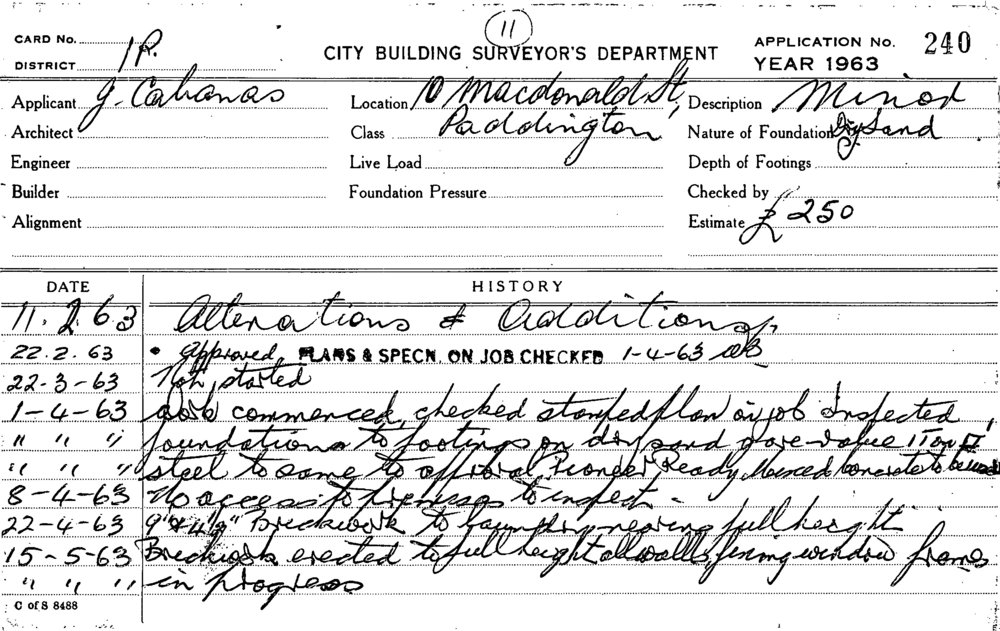 11
CARD No.
DISTRICT 1R.
CITY BUILDING SURVEYOR'S DEPARTMENT
APPLICATION No. 240
YEAR 1963
Applicant J. Cabanas
Location 10 Macdonald St,
Description Minor
Architect
Class Paddington
Nature of Foundation Dry Sand
Engineer
Live Load
Depth of Footings
Builder
Foundation Pressure
Checked by
Alignment
Estimate £250
DATE HISTORY
11.2.63 Alterations & Additions
22.2.63 Approved. PLANS & SPECN. ON JOB CHECKED 1-4-63
22-3-63 Not started
1-4-63 work commenced, checked stamped plan on job Inspected
" " " foundations to footings on dry sand gave value 1 Ton
" " " steel to same to approval Pioneer Ready Mixed Concrete to be used
8-4-63 No access to premises to inspect -
22-4-63 9" & 4½" Brickwork to laundry nearing full height
15-5-63 Brickwork erected to full height all walls, fixing window frames
" " " in progress
C of S 8488